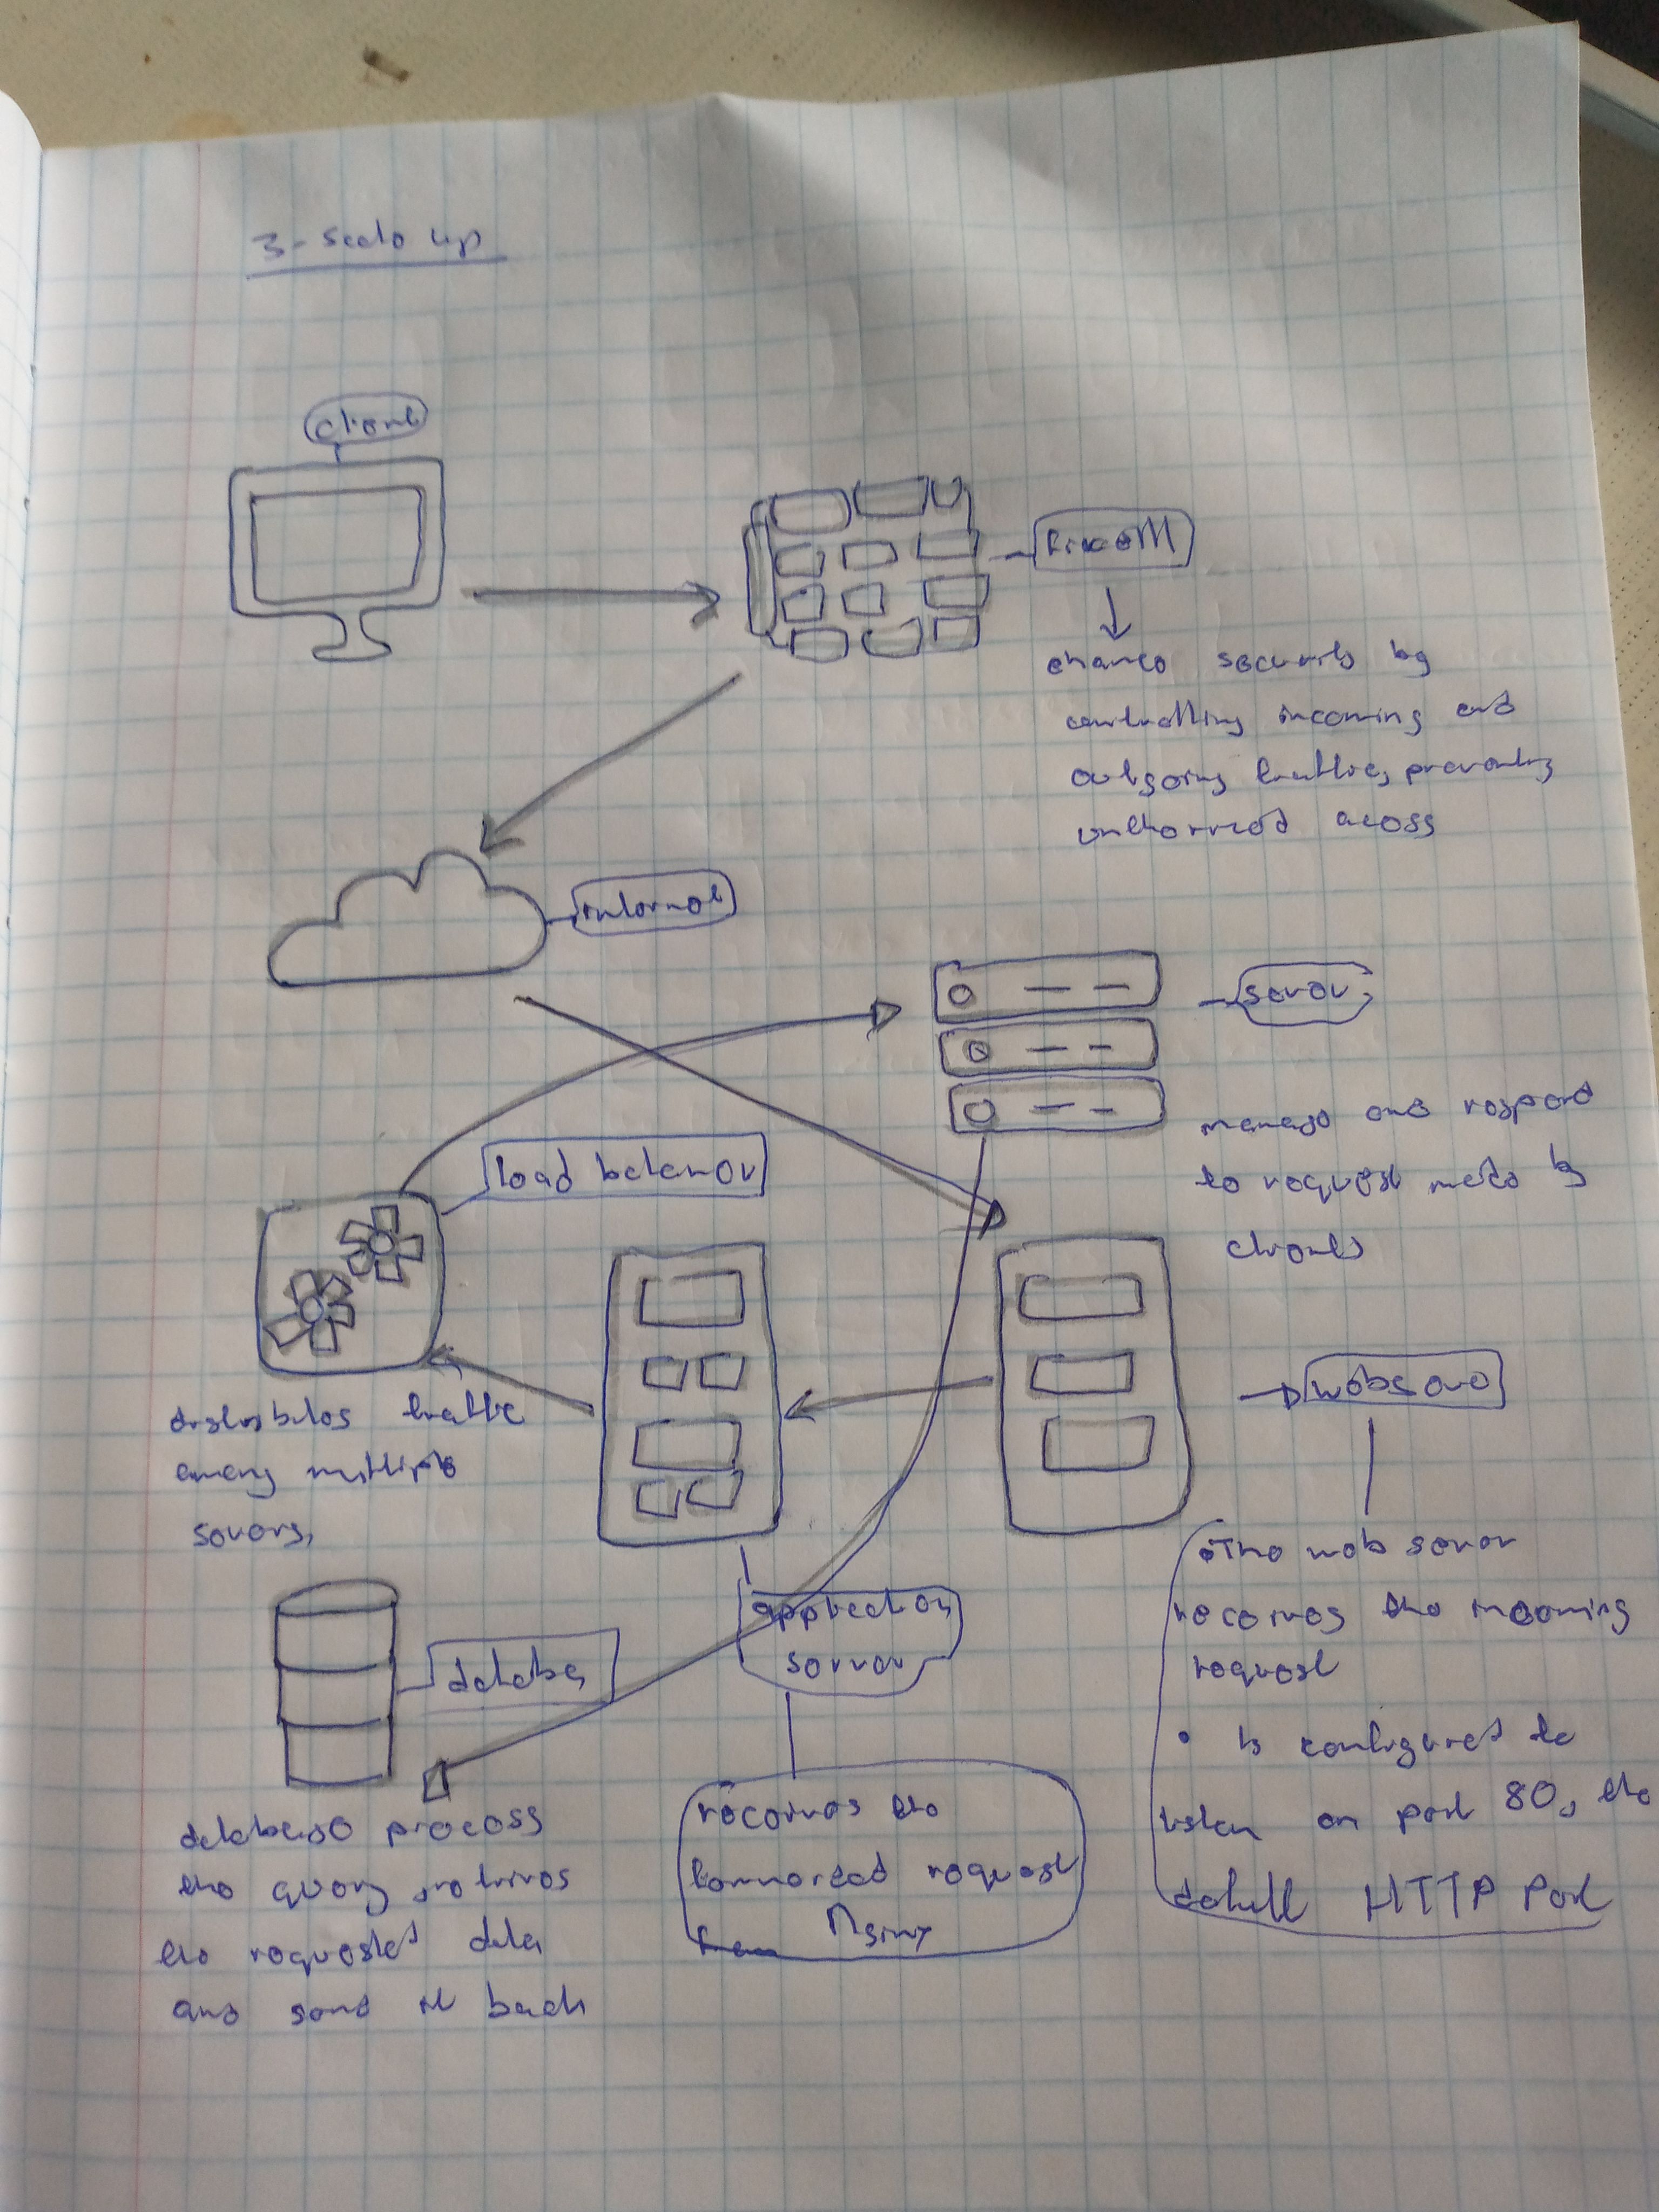 3- scale up
client
firewall
enhance security by
controlling incoming and
outgoing traffic, preventing
unthorized acess
internet
server
manage and respond
to request made by
clients
load balancer
distributes traffic
among multiple
servers,
webserve
The web server
receives the incoming
request
• is configured to
listen on port 80, the
default HTTP Port
application
server
receives the
forwarded request
from Nginx
databas
database process
the query, retrives
the requested data
and send it back